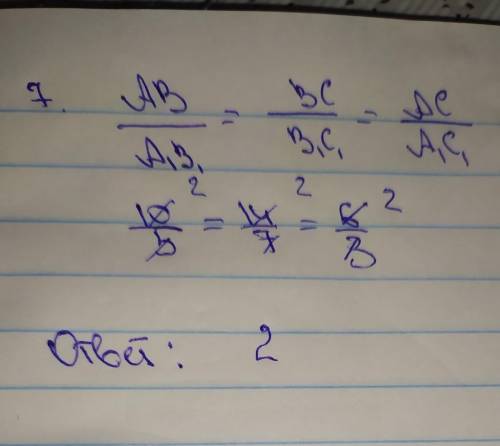 7. AB/A₁B₁ = BC/B₁C₁ = AC/A₁C₁
10/5 2 = 14/7 2 = 6/3 2
Ответ: 2